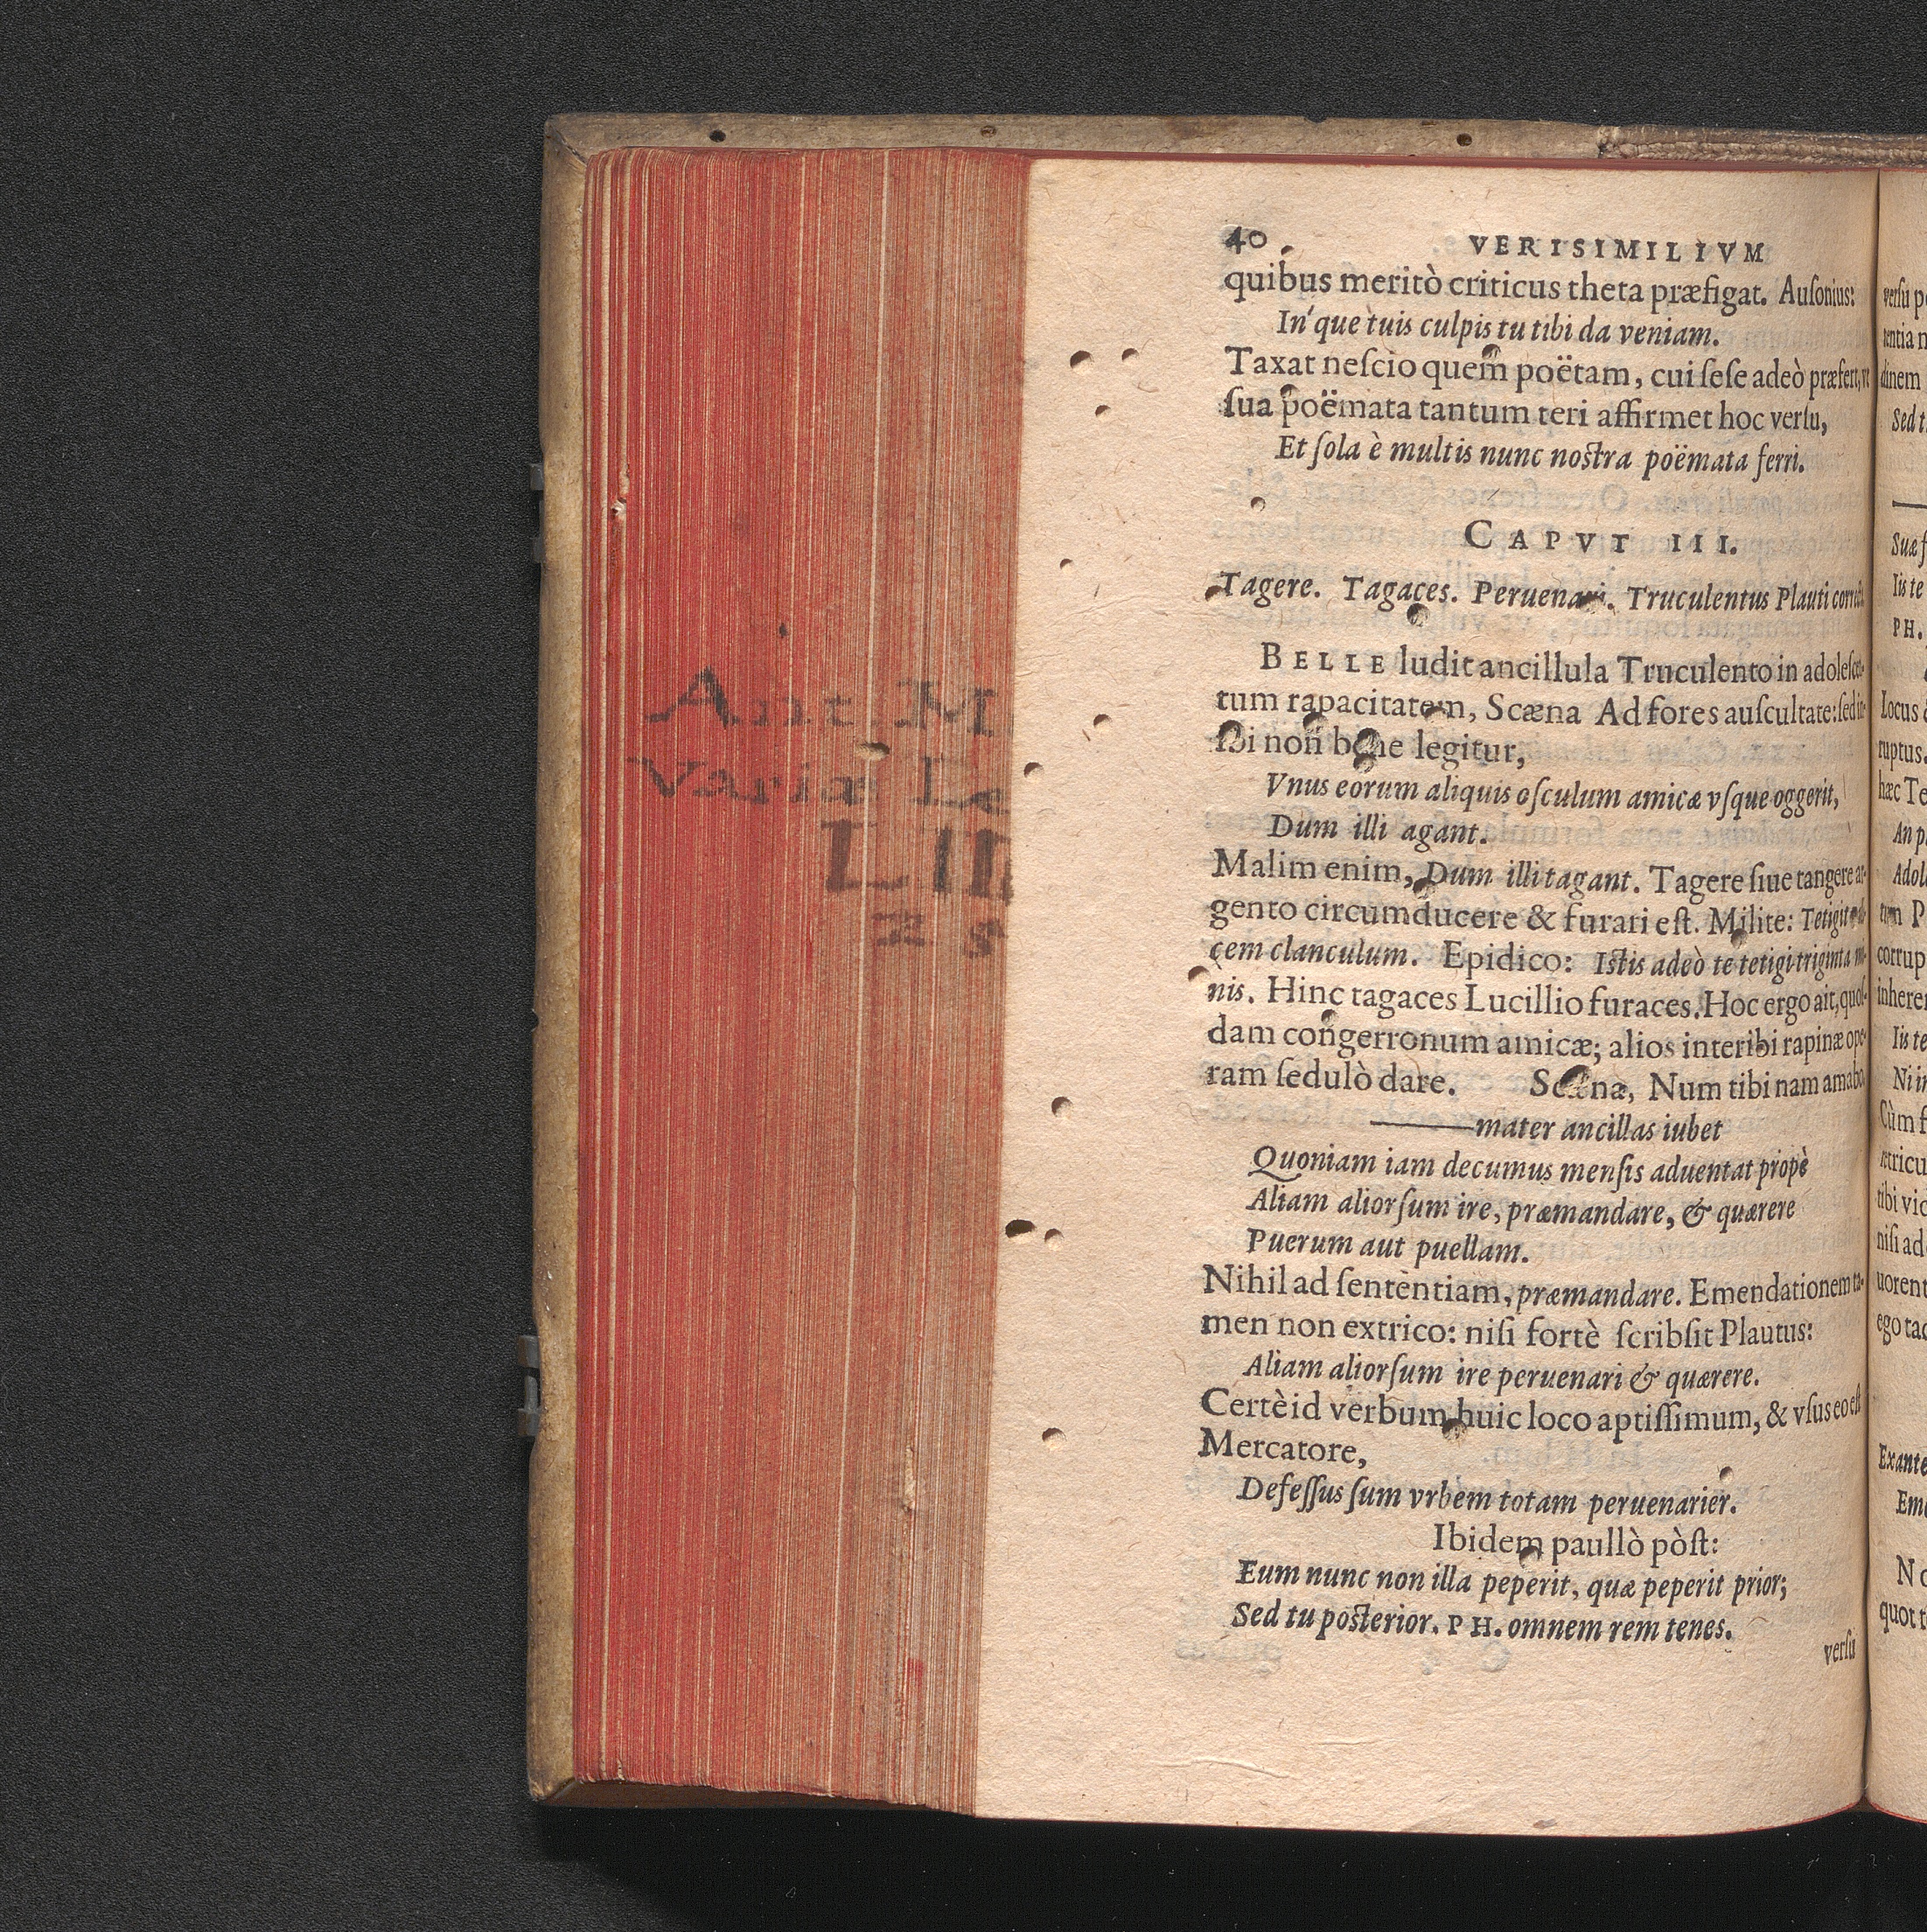 40 VERISIMILIVM
quibus meritò criticus theta præfigat. Auſonius:
In' que tuis culpis tu tibi da veniam.
Taxat neſcio quem poëtam, cui ſeſe adeò præfert, vt
ſua poëmata tantum teri affirmet hoc verſu,
Et ſola è multis nunc noſtra poëmata ferri.
CAPVT III.
Tagere. Tagaces. Peruenari. Truculentus Plauti
BELLE ludit ancillula Truculento in
tum rapacitatem, Scæna Ad fores auſcultate: ſed
ibi non bene legitur,
Vnus eorum aliquis oſculum amicæ vſque oggerit,
Dum illi agant.
Malim enim, Dum illi tagant. Tagere ſiue tangere ar-
gento circumducere & furari eſt. Milite: Tetigit
cem clanculum. Epidico: Iſtis adeò te tetigi triginta mi-
nis. Hinc tagaces Lucillio furaces. Hoc ergo ait, quoſ-
dam congerronum amicæ; alios interibi rapinæ ope-
ram ſedulò dare. Scænæ, Num tibi nam amabo
mater ancillas iubet
Quoniam iam decumus menſis aduentat propè
Aliam aliorſum ire, præmandare, & quærere
Puerum aut puellam.
Nihil ad ſententiam, præmandare. Emendationem ta-
men non extrico: niſi fortè ſcribſit Plautus:
Aliam aliorſum ire peruenari & quærere.
Certè id verbum huic loco aptiſſimum, & vſus eo eſt
Mercatore,
Defeſſus ſum vrbem totam peruenarier.
Ibidem paullò pòſt:
Eum nunc non illa peperit, quæ peperit prior;
Sed tu poſterior. PH. omnem rem tenes.
verſu
Ant. M
Variæ Le
LII
verſu p
tentia n
dinem
Sed t
Suæ ſ
Iis te
PH.
Locus
ruptus.
hæc Te
An p
Adol
tum P
corrup
inherer
Iis te
Ni in
Cùm f
tibi vic
niſi ad
uorent
ego tac
Exante
Em
No
quot t